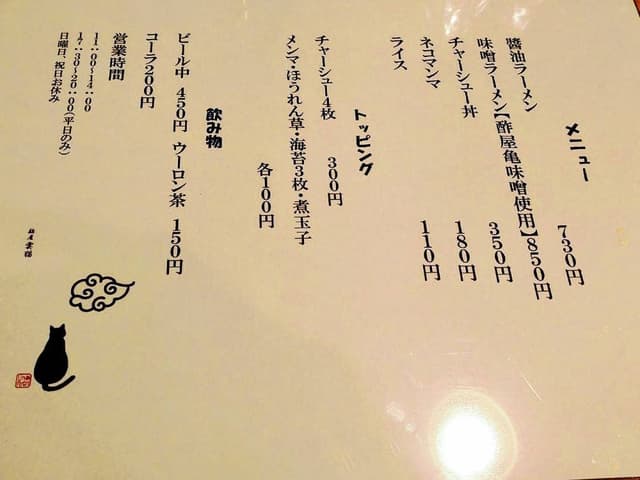 メニュー
醬油ラーメン 730円
味噌ラーメン【酢屋亀味噌使用】850円
チャーシュー丼 350円
ネコマンマ 180円
ライス 110円
トッピング
チャーシュー4枚 300円
メンマ・ほうれん草・海苔3枚・煮玉子
各100円
飲み物
ビール中 450円 ウーロン茶 150円
コーラ200円
営業時間
11:00~14:00
17:30~20:00(平日のみ)
日曜日、祝日お休み